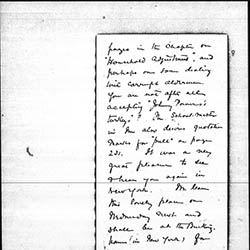 pages in the Chapter on
"Household Adjustment", and
perhaps one some dealing
with corrupt aldermen.
You are not after all
accepting "Johnny Powers's
today"? The School-master
in Mr. also desires quotation
marks for "pull" on page
221. It was a very
great pleasure to see
& hear you again in
New York. We leave
this lovely place on
Wednesday next and
shall be at the
in New York; You